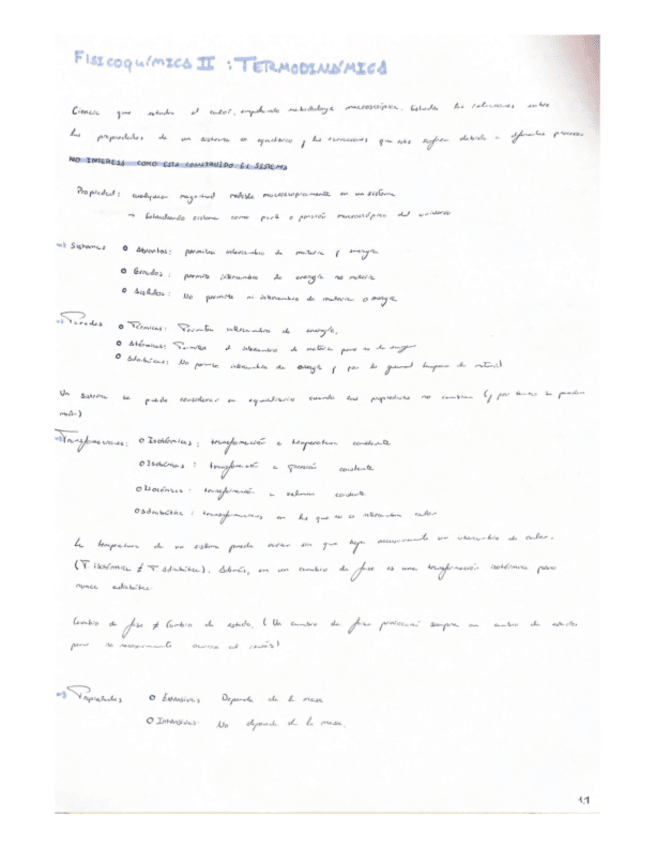 FISICOQUÍMICA II : TERMODINÁMICA
Ciencia que estudia el calor, empleando metodología macroscópica. Estudia las relaciones entre
las propiedades de un sistema en equilibrio y las variaciones que estas sufren debido a diferentes procesos
NO INTERESA COMO ESTA CONSTRUIDO EL SISTEMA
Propiedad: cualquier magnitud medible macroscopicamente en un sistema
→ Entendiendo sistema como parte o porción macroscópica del universo
Sistemas o Abiertos: permiten intercambio de materia y energía
o Cerrados: permite intercambio de energía no materia
o Aislados: No permite ni intercambio de materia o energía
Paredes o Térmicas: Permiten intercambio de energía.
o Atérmicas: Permite el intercambio de materia pero no de energía
o Adiabáticas: No permite intercambio de energía y por lo general tampoco de materia
Un sistema se puede considerar en equilibrio cuando sus propiedades no cambian (y por tanto se pueden
medir)
Transformaciones: o Isotérmicas: transformación a temperatura constante
o Isobáricas: transformación a presión constante
o Isocóricas: transformación a volumen constante
o Adiabáticas: transformaciones en las que no se intercambia calor
La temperatura de un sistema puede variar sin que haya necesariamente un intercambio de calor.
(T isotérmica ≠ T adiabática). Además, en un cambio de fase es una transformación isotérmica pero
nunca adiabática.
Cambio de fase ≠ Cambio de estado. (Un cambio de fase provocará siempre un cambio de estado
pero no necesariamente ocurre al revés)
Propiedades o Extensivas: Depende de la masa
o Intensivas: No depende de la masa.
1.1